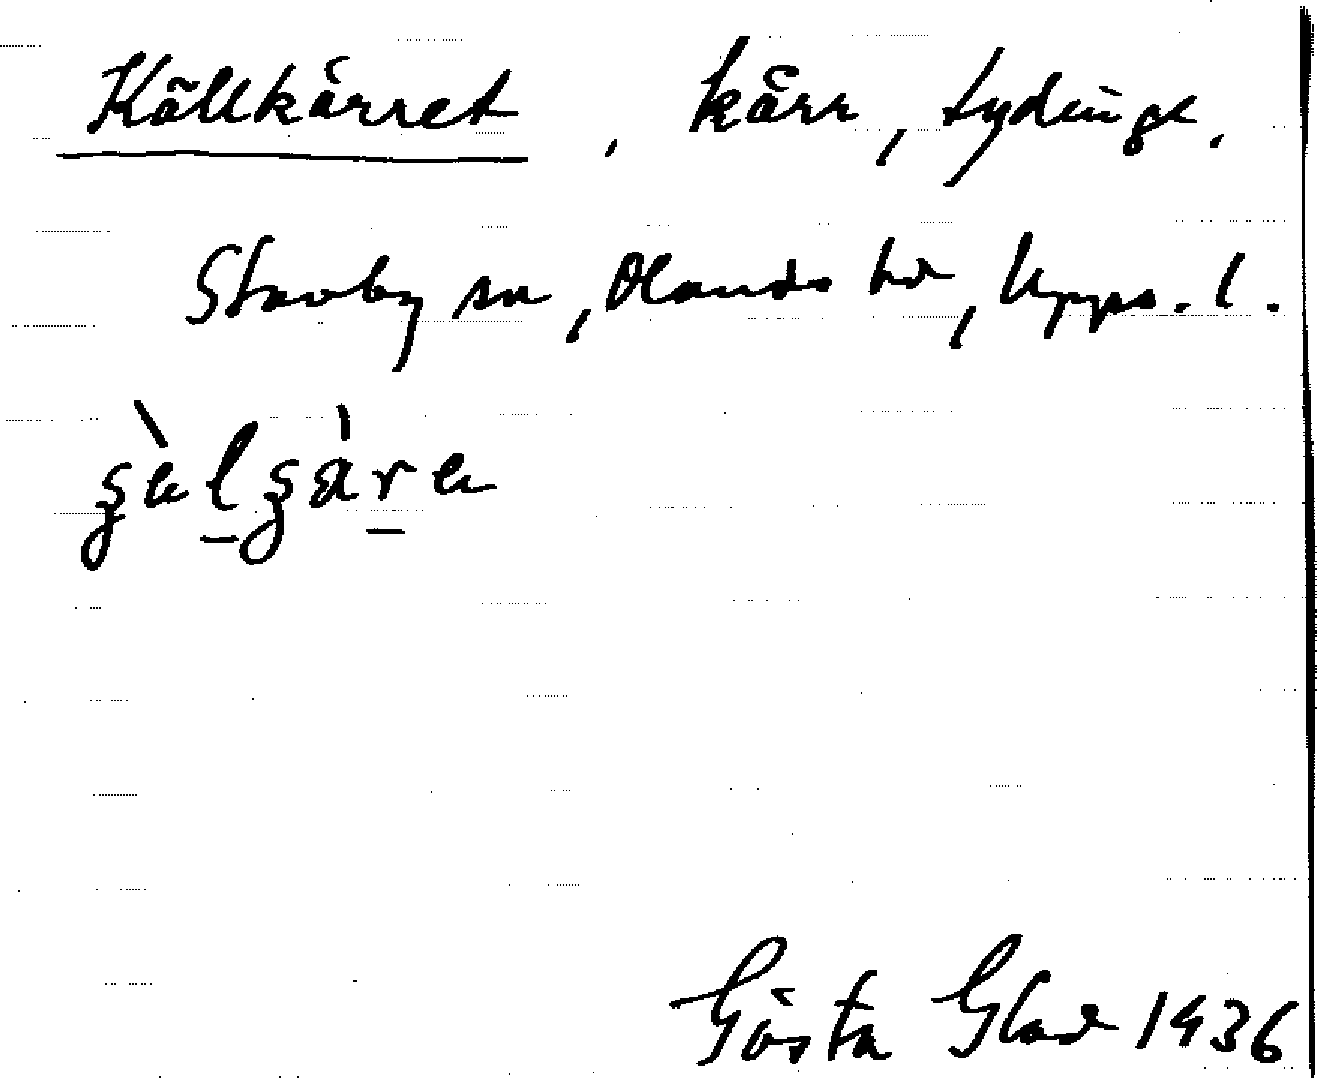 Källkärret, kärr, Lydinge.
Stavby sn, Olands hd, Upps. l.
Gösta Glad 1936